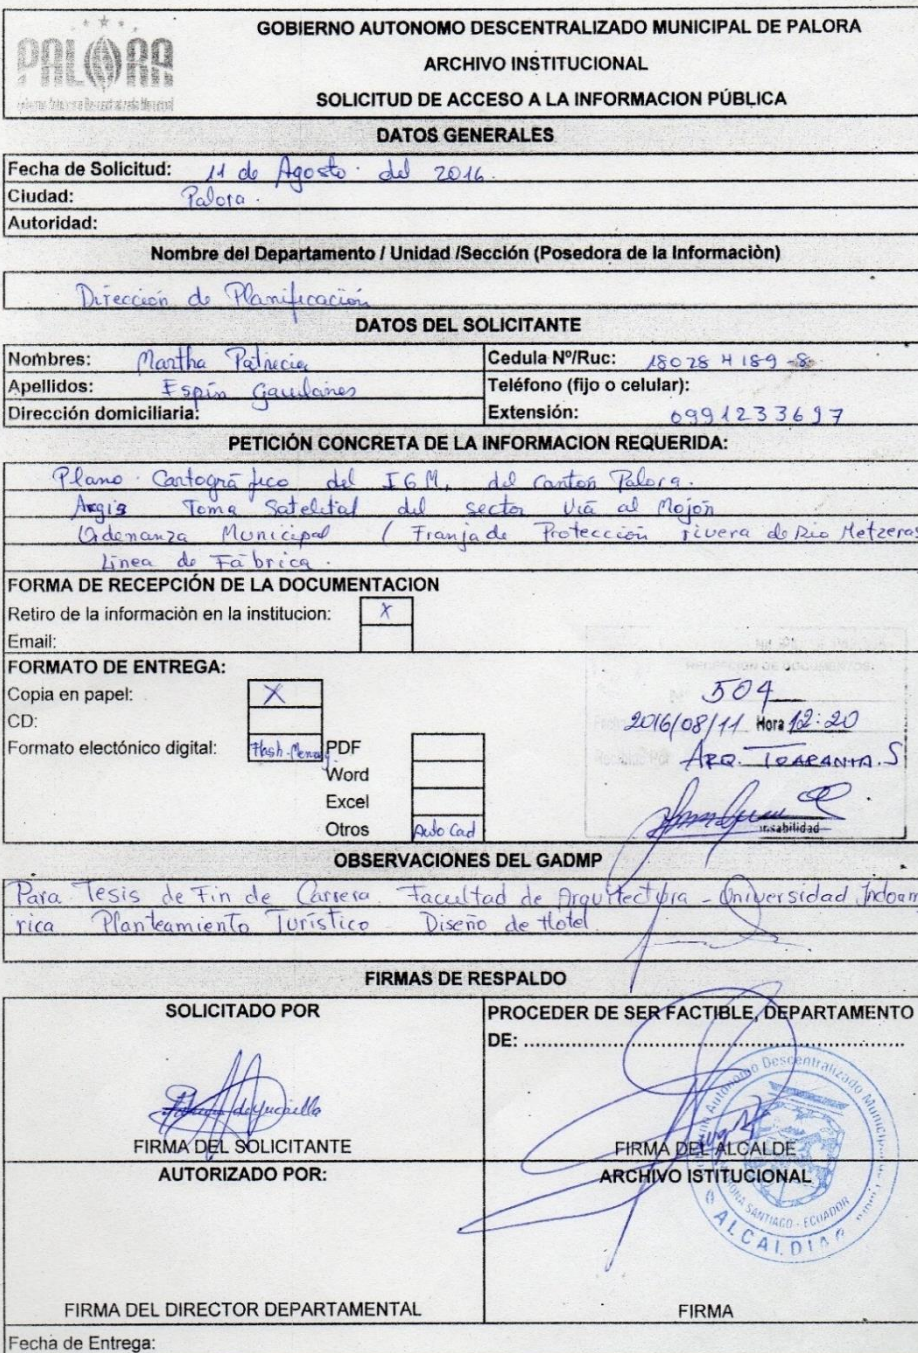 PALORA
GOBIERNO AUTONOMO DESCENTRALIZADO MUNICIPAL DE PALORA
ARCHIVO INSTITUCIONAL
SOLICITUD DE ACCESO A LA INFORMACION PÚBLICA
DATOS GENERALES
Fecha de Solicitud: 11 de Agosto. del 2016.
Ciudad: Palora.
Autoridad:
Nombre del Departamento / Unidad /Sección (Posedora de la Informaciòn)
Dirección de Planificación
DATOS DEL SOLICITANTE
Nombres: Martha Patricia Cedula Nº/Ruc: 180284189-8
Apellidos: Espín Teléfono (fijo o celular):
Dirección domiciliaria: Extensión: 0991233697
PETICIÓN CONCRETA DE LA INFORMACION REQUERIDA:
Plano Cartográfico del I6M. del cantón Palora.
Argis Toma Satelital del sector Viá al Mojón
Ordenanza Municipal / Franja de Protección rivera de Rio Metzeras
Linea de Fábrica.
FORMA DE RECEPCIÓN DE LA DOCUMENTACION
Retiro de la informaciòn en la institucion: X
Email:
FORMATO DE ENTREGA:
Copia en papel: X
CD:
Formato electónico digital: Flash-Memory PDF
Word
Excel
Otros Auto Cad
504
2016/08/11 Hora 12:20
ARQ. S
nsabilidad
OBSERVACIONES DEL GADMP
Para Tesis de Fin de Carrera Facultad de Arquitectura - Universidad Indoam
rica Planteamiento Turístico Diseño de Hotel
FIRMAS DE RESPALDO
SOLICITADO POR
FIRMA DEL SOLICITANTE
PROCEDER DE SER FACTIBLE, DEPARTAMENTO
DE: ..........................................................
FIRMA DEL ALCALDE
Autonomo Descentralizado Municipal
SANTIAGO - ECUADOR
ALCALDIA
AUTORIZADO POR:
FIRMA DEL DIRECTOR DEPARTAMENTAL
ARCHIVO ISTITUCIONAL
FIRMA
Fecha de Entrega: